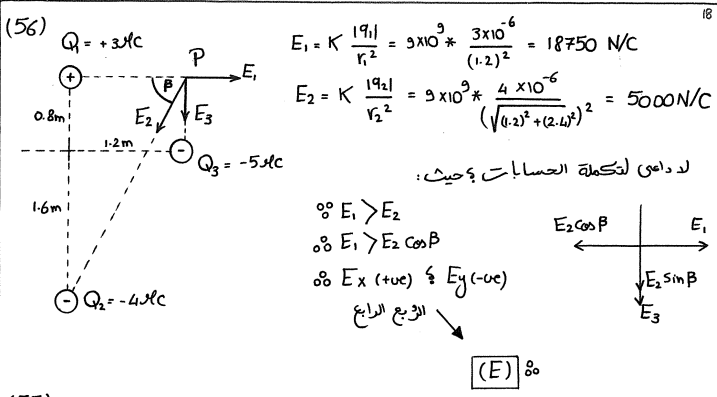 18
(56)
Q₁ = +3 μC
P
E₁
β
E₂
E₃
0.8m
1.2m
Q₃ = -5μC
1.6m
Q₂ = -4μC
E₁ = K |q₁|/r₁² = 9×10⁹ * 3×10⁻⁶/(1.2)² = 18750 N/C
E₂ = K |q₂|/r₂² = 9×10⁹ * 4×10⁻⁶/(√((1.2)²+(2.4)²))² = 5000 N/C
لا داعي لتكملة الحسابات ؛ حيث:
∵ E₁ > E₂
∴ E₁ > E₂ cos β
∴ Ex (+ve) ؛ Ey (-ve)
الربع الرابع
(E) ∴
E₂ cos β
E₁
E₂ sin β
E₃